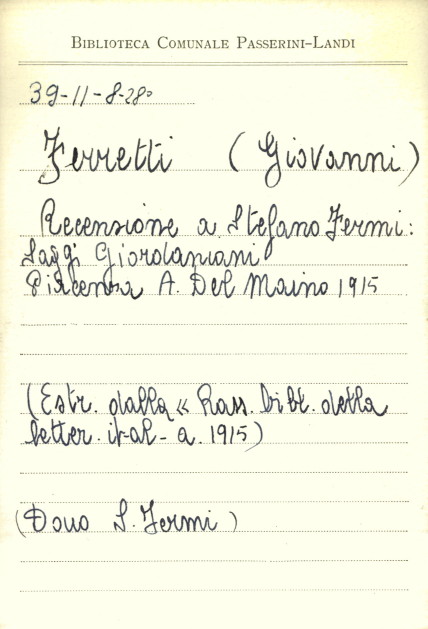 BIBLIOTECA COMUNALE PASSERINI-LANDI
39-11-8-28°
Ferretti (Giovanni)
Recensione a Stefano Fermi:
Saggi Giordaniani
Piacenza A. Del Maino 1915
(Estr. dalla « Rass. bibl. della
letter. ital - a. 1915)
(Dono S. Fermi)